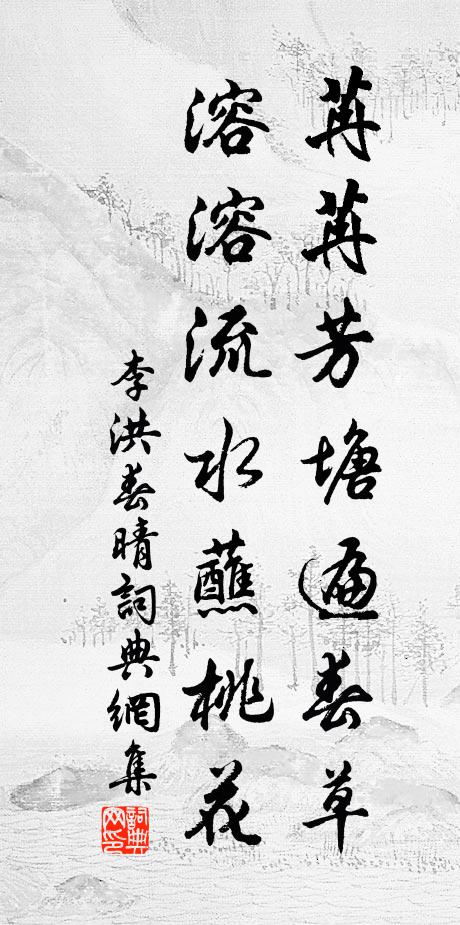 苒苒芳塘遍春草
溶溶流水蘸桃花
李洪春晴詞典網集
詞典网印